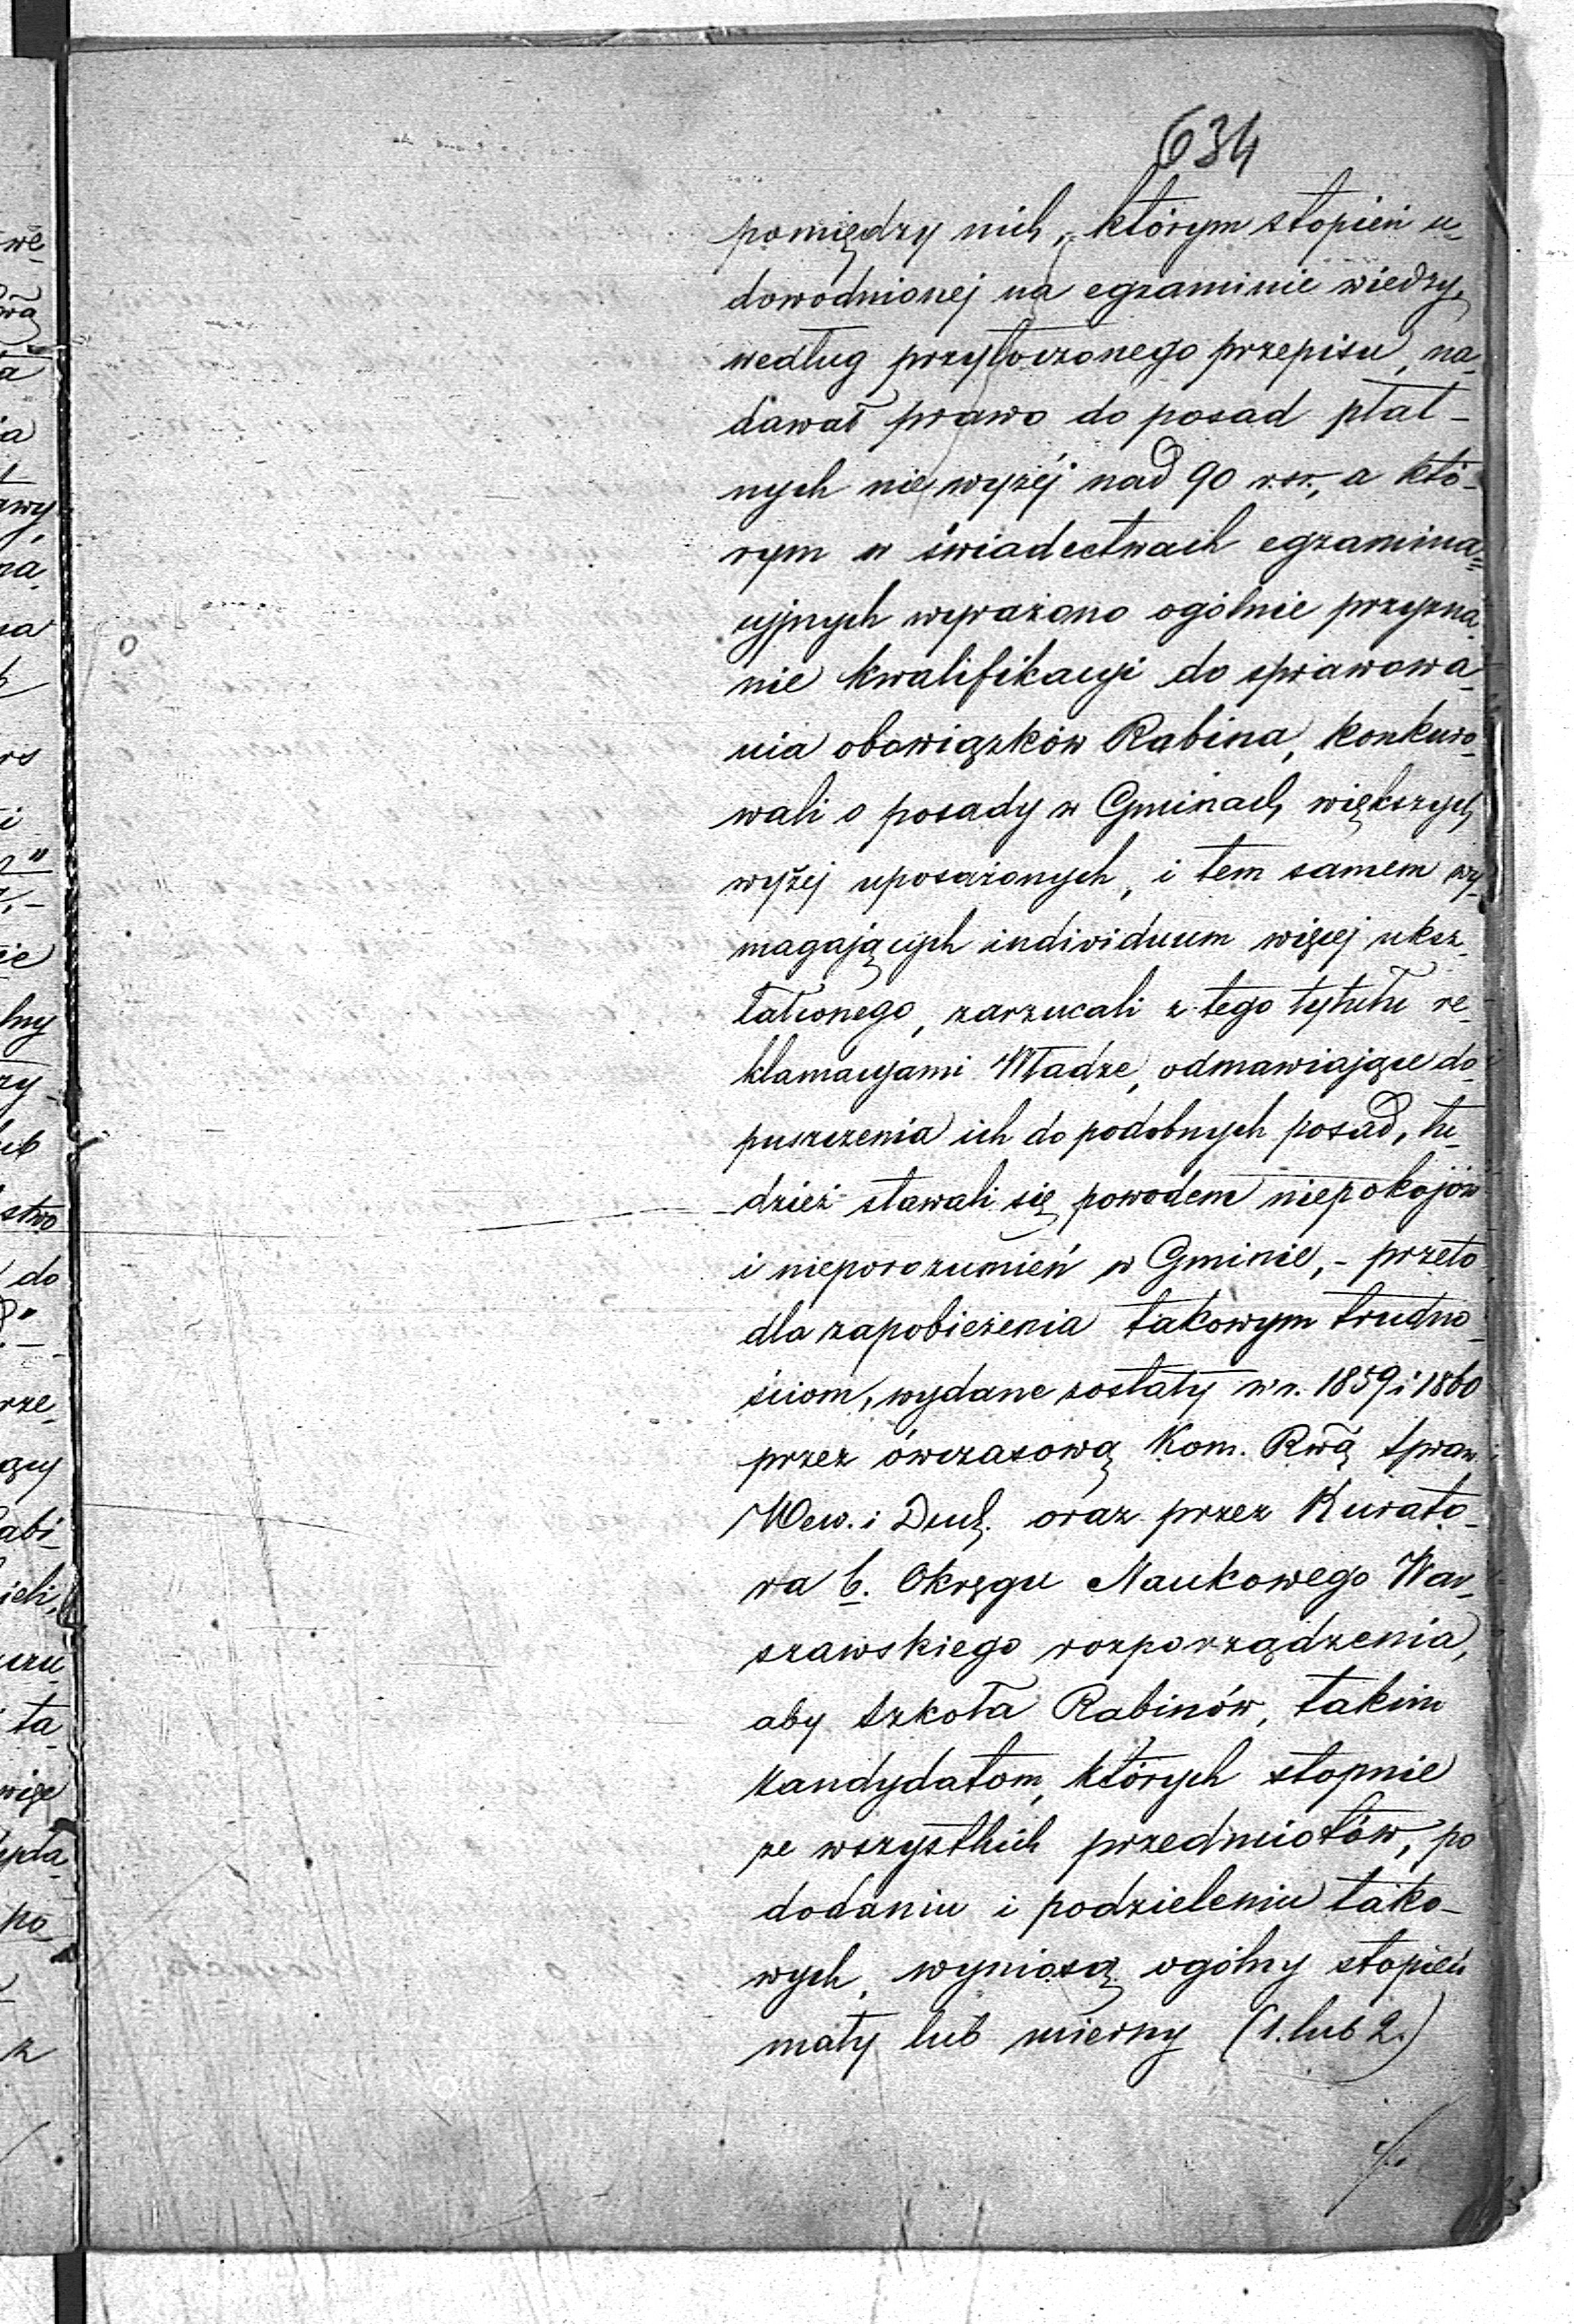 634
pomiędzy nich, którym stopień u-
dowodnionej na egzaminie wiedzy,
według przytoczonego przepisu, na-
dawał prawo do posad płat-
nych nie wyżéj nad 90 rsr., a któ-
rym w świadectwach egzamina-
cyjnych wyrażono ogólnie przyzna-
nie kwalifikacyi do sprawowa-
nia obowiązków Rabina, konkuro-
wali o posady w Gminach większych,
wyżej uposażonych, i tem samem wy-
magających individuum więcej uksz-
tałconego, zarzucali z tego tytułu re-
klamacyami Władze, odmawiające do-
puszczenia ich do podobnych posad, tu-
dzież stawali się powodem niepokojów
i nieporozumień w Gminie, - przeto
dla zapobieżenia takowym trudno-
ściom, wydane zostały w r. 1859 i 1860
przez ówczasową Kom. Rwą Spraw
Wew. i Duch. oraz przez Kurato-
ra b. Okręgu Naukowego War-
szawskiego rozporządzenia,
aby Szkoła Rabinów, takim
kandydatom, których stopnie
ze wszystkich przedmiotów, po
dodaniu i podzieleniu tako-
wych, wyniosą ogólny stopień
mały lub mierny (1. lub 2.)
./.